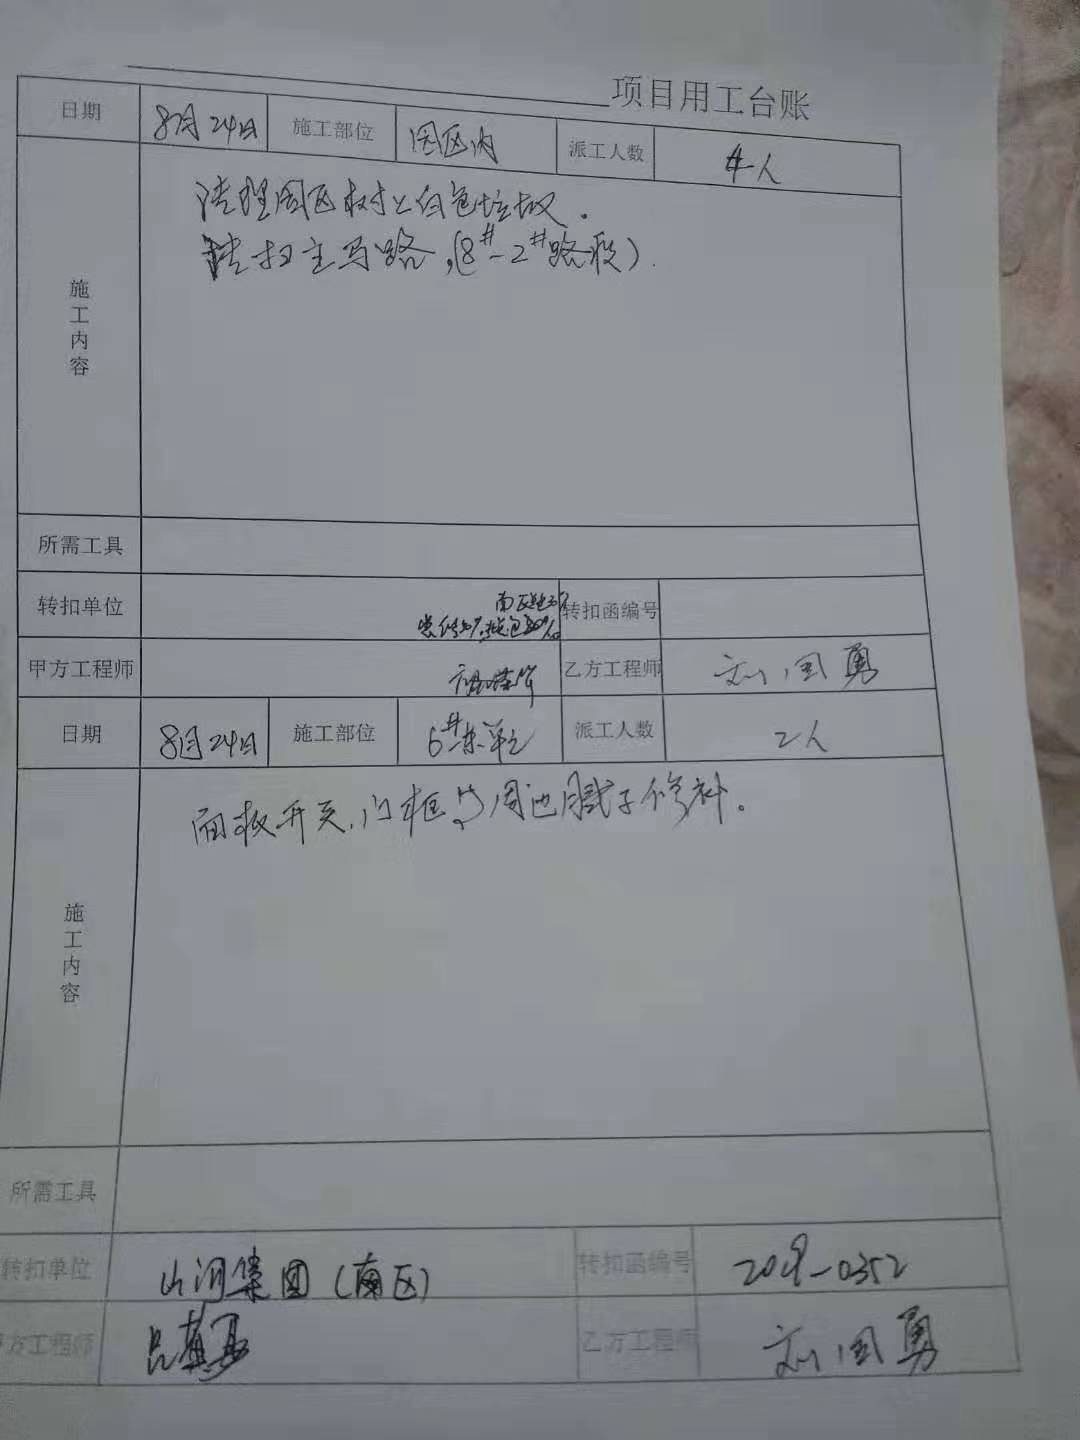 项目用工台账
日期 8月24日 施工部位 园区内 派工人数 4人
施工内容
清理园区树上白色垃圾.
清扫主马路,(8#-2#路段).
所需工具
转扣单位 转扣函编号
甲方工程师 乙方工程师 刘国勇
日期 8月24日 施工部位 6#东单元 派工人数 2人
施工内容
面板开关,门框与周边腻子修补。
所需工具
转扣单位 山河集团(南区) 转扣函编号 2019-0352
甲方工程师 乙方工程师 刘国勇